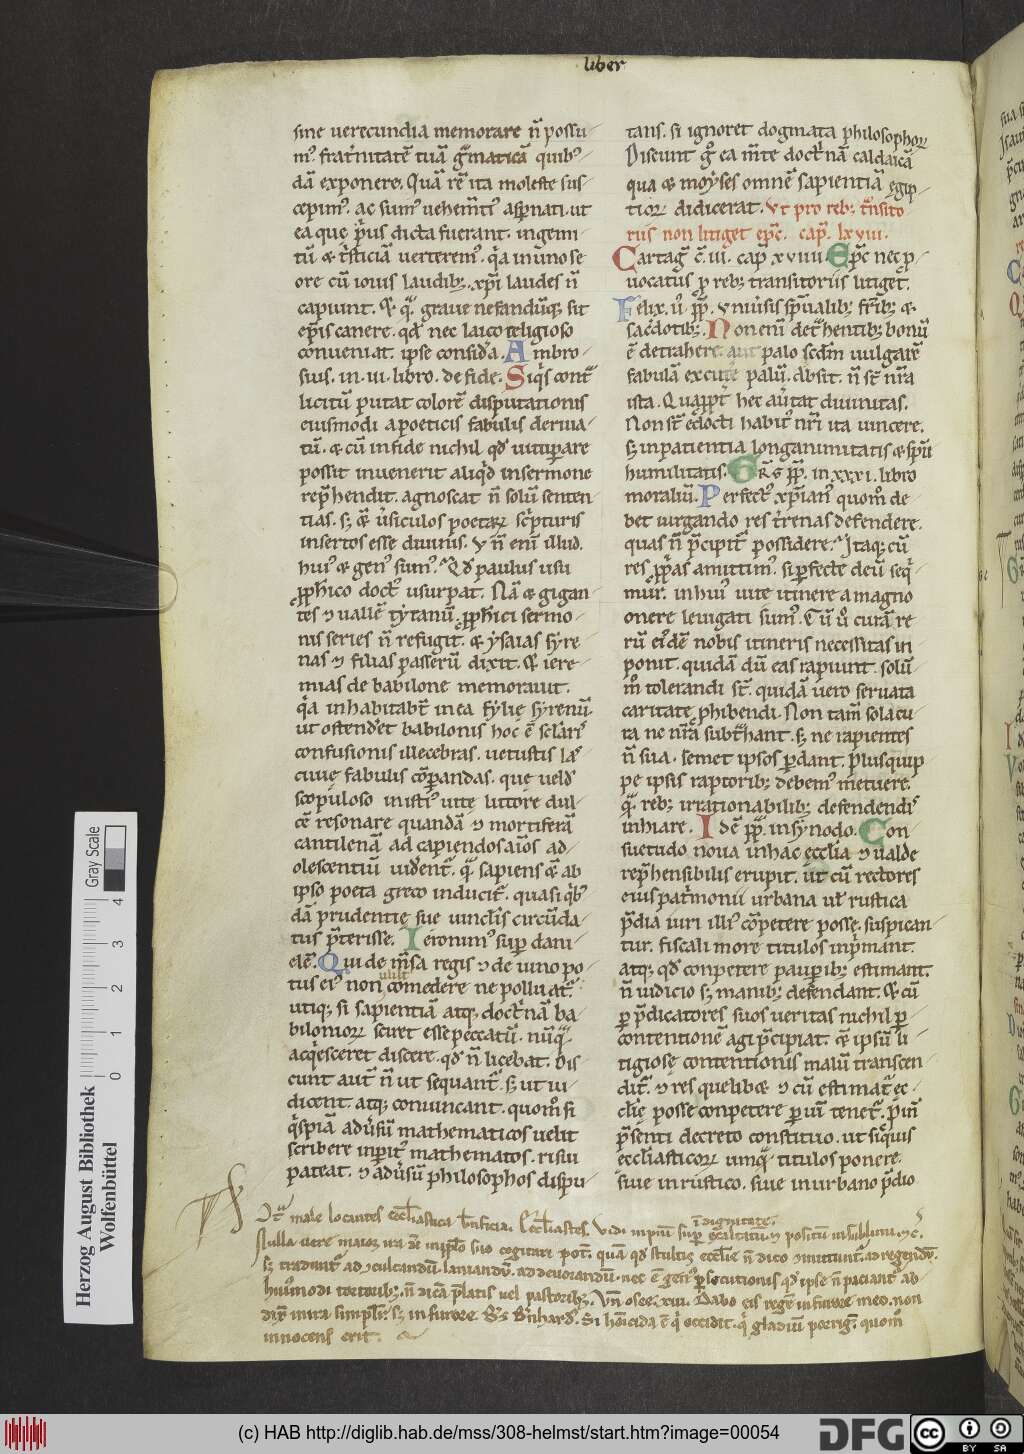 liber
sine uerecundia memorare n̄ possu
m᷒. fraťnitatē tuā ḡmaticā quib᷒
dā exponere. Quā rē ita moleste sus
cepim᷒. ac sum᷒ uehem̄ti᷒ asp̱nati. ut
ea que p̄us dicta fuerant. in gemi
tū & t̄sticiā uerterem᷒. q̄a in uno se
ore cū iouis laudib; xp̄i laudes n̄
capiunt. Et q̄ graue nefandūq; sit
ep̄is canere. qd̄ nec laico religioso
conueniat. ipse consid̄a. Ambro
sius. in .iii. libro. de fide. Siq̄s cont̄
licitū putat colorē disputationis
eiusmodi a poeticis fabulis deriua
tū. & cū in fide nichil qd̄ uitup̱are
possit inuenerit aliq̄d in sermone
rep̄hendit. agnoscat n̄ solū senten
tias. s; & ūsiculos poetaꝝ sc̄pturis
insertos esse diuinis. Vn̄ enī illud.
hui᷒ & gen᷒ sum᷒. Qd̄ paulus usu
ꝓph̄ico doct᷒ usurpat. Nā & gigan
tes ⁊ uallē tytanū. ꝓph̄ici sermo
nis series n̄ refugit. & ysaias syre
nas ⁊ filias passerū dixit. Et iere
mias de babilone memorauit.
q̄a inhabitabt̄ in ea fylie syrenū.
ut ostend̄et babilonis hoc ē sc̄lari᷒
confusionis illecebras. uetustis las
ciuie fabulis cōp̱andas. que uel᷒
scopuloso in isti᷒ uite littore dul
cē resonare quandā ⁊ mortiferā
cantilenā ad capiendos aīos ad
olescentiū uident᷑. q̄ sapiens & ab
ipso poeta greco inducit᷑. quasi q̄b᷒
dā prudentie sue uincl̄is circūda
tus p̄terisse. Ieronim᷒ sup̱ dani
elē. Qui de m̄sa regis ⁊ de uino po
tus ei᷒ non uult comedere ne polluat᷑.
utiq; si sapientiā atq; doct̄nā ba
biloniorꝝ sciret esse peccatū. nūq̄
acq̄esceret discere. qd̄ n̄ licebat. Dis
cunt aut̄ n̄ ut sequant᷑. s; ut iu
dicent. atq; conuincant. quom̄ si
q̄spiā adūsū mathematicos uelit
scribere inp̱it᷒ mathematos. risui
pateat. ⁊ adūsū philosophos dispu
tans. si ignoret dogmata philosophoꝝ
Discunt ḡ ea m̄te doct̄nā caldaicā
qua & moyses omnē sapientiā egip
tioꝝ didicerat. Vt pro reb; t̄nsito
riis non litiget ep̄c. cap̄. lxviii.
Cartag̱ c̄ iii. cap̄ xviiii. Ep̄c nec p̱
uocatus p̱ reb; transitoriis litiget.
Felix. ii᷒. pp̄. Vniūsis sp̄ualib; fr̄ib; &
sac̄dotib; Non enī det̄hentib; bonū
ē detrahere. aut palo scd̄m uulgarē
fabulā excute palū. Absit. n̄ st̄ nr̄a
ista. Quapp̄t̄ hec aūtat diuinitas.
Non st̄ edocti habit᷒ nr̄i ita uincere.
s; in patientia longanimitatis & sp̄u
humilitatis. Grḡ pp̄. in xxxi. libro
moraliū. Perfect᷒ xp̄ian᷒ quom̄ de
bet iurgando res t̄renas defendere.
quas n̄ p̄cipit᷑ possidere. Itaq; cū
res ꝓpias amittim᷒. si p̱fecte deū seq̄
mur. in hui᷒ uite itinere a magno
onere leuigati sum᷒. Cū ū curā re
rū ei᷒dē nobis itineris necessitas in
ponit. quidā dū eas rapiunt. solū
m̊ tolerandi st̄. quidā uero seruata
caritate phibendi. Non tam̄ sola cu
ra ne nr̄a subt̄hant. s; ne rapientes
n̄ sua. semet ipsos p̱dant. Plus quip
pe ipsis raptorib; debem᷒ metuere.
q̄ reb; irrationabilib; defendendi᷒
inhiare. Idē pp̄. in synodo. Con
suetudo noua in hac ecclīa ⁊ ualde
rep̄hensibilis erupit. ut cū rectores
eius pat̄monii urbana ul̄ rustica
p̄dia iuri illi᷒ cōpetere posse. suspican
tur. fiscali more titulos inp̄mant.
atq; qd̄ conpetere paup̱ib; estimant.
n̄ iudicio s; manib; defendant. Et cū
p̱ p̄dicatores suos ueritas nichil p̱
contentionē agi p̄cipiat. & ipsū li
tigiose contentionis malū transcen
dit. ⁊ res quelib& ⁊ cū estimat᷑ ec
clīe posse conpetere p̱ uī tenet᷑. p̄īn
p̄senti decreto constituo. ut siq̄uis
ecclīasticoꝝ umq̄ titulos ponere.
siue in rustico. siue in urbano p̄dio
It̄ male locantes eccl̄iastica b̄nficia. Eccl̄iastes. Vidi inpiū sup̱ in dignitate
Nulla uere maior ira dei
s; tradunt᷑ ad ⁊culcandū. laniandū. ad deuorandū. nec ē gen᷒ p̱secutionis qd̄ ipse n̄ paciant᷑ ab
hui᷒modi tortorib; n̄ dicā p̄latis uel pastorib; Vn̄ osee. xiii. Dabo eis regē in furore meo. non
dix̄ in ira simplr̄. s; in furore. B̄nhard᷒. Si homicida ē q̄ occidit. q̄ gladiū porrig̱. quom̄
innocens erit.
Herzog August Bibliothek
Wolfenbüttel
0 1 2 3 4
Gray Scale
(c) HAB http://diglib.hab.de/mss/308-helmst/start.htm?image=00054
DFG
cc BY SA